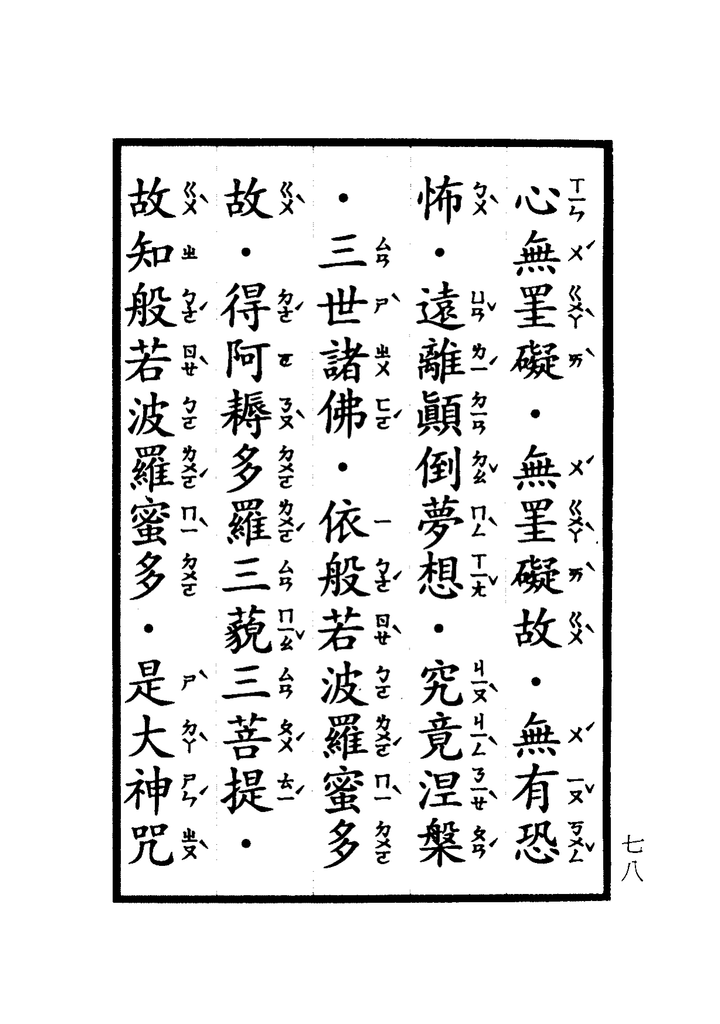 心無罣礙・無罣礙故・無有恐
怖・遠離顚倒夢想・究竟涅槃
・三世諸佛・依般若波羅蜜多
故・得阿耨多羅三藐三菩提・
故知般若波羅蜜多・是大神咒
七八